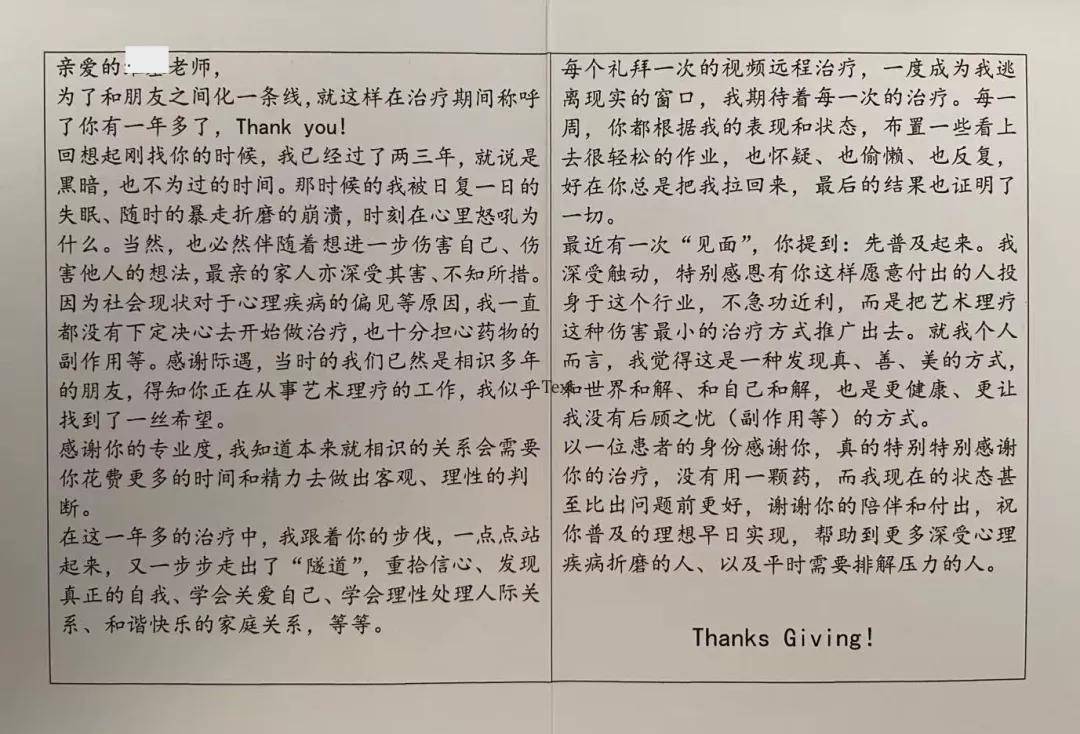 亲爱的老师，
为了和朋友之间化一条线,就这样在治疗期间称呼
了你有一年多了，Thank you!
回想起刚找你的时候，我已经过了两三年，就说是
黑暗，也不为过的时间。那时候的我被日复一日的
失眠、随时的暴走折磨的崩溃，时刻在心里怒吼为
什么。当然，也必然伴随着想进一步伤害自己、伤
害他人的想法，最亲的家人亦深受其害、不知所措。
因为社会现状对于心理疾病的偏见等原因,我一直
都没有下定决心去开始做治疗,也十分担心药物的
副作用等。感谢际遇，当时的我们已然是相识多年
的朋友，得知你正在从事艺术理疗的工作，我似乎
找到了一丝希望。
感谢你的专业度,我知道本来就相识的关系会需要
你花费更多的时间和精力去做出客观、理性的判
断。
在这一年多的治疗中，我跟着你的步伐，一点点站
起来，又一步步走出了“隧道”，重拾信心、发现
真正的自我、学会关爱自己、学会理性处理人际关
系、和谐快乐的家庭关系，等等。
每个礼拜一次的视频远程治疗，一度成为我逃
离现实的窗口，我期待着每一次的治疗。每一
周，你都根据我的表现和状态，布置一些看上
去很轻松的作业，也怀疑、也偷懒、也反复，
好在你总是把我拉回来，最后的结果也证明了
一切。
最近有一次“见面”，你提到：先普及起来。我
深受触动，特别感恩有你这样愿意付出的人投
身于这个行业，不急功近利，而是把艺术理疗
这种伤害最小的治疗方式推广出去。就我个人
而言，我觉得这是一种发现真、善、美的方式，
和世界和解、和自己和解，也是更健康、更让
我没有后顾之忧（副作用等）的方式。
以一位患者的身份感谢你，真的特别特别感谢
你的治疗，没有用一颗药，而我现在的状态甚
至比出问题前更好，谢谢你的陪伴和付出，祝
你普及的理想早日实现，帮助到更多深受心理
疾病折磨的人、以及平时需要排解压力的人。
Thanks Giving!